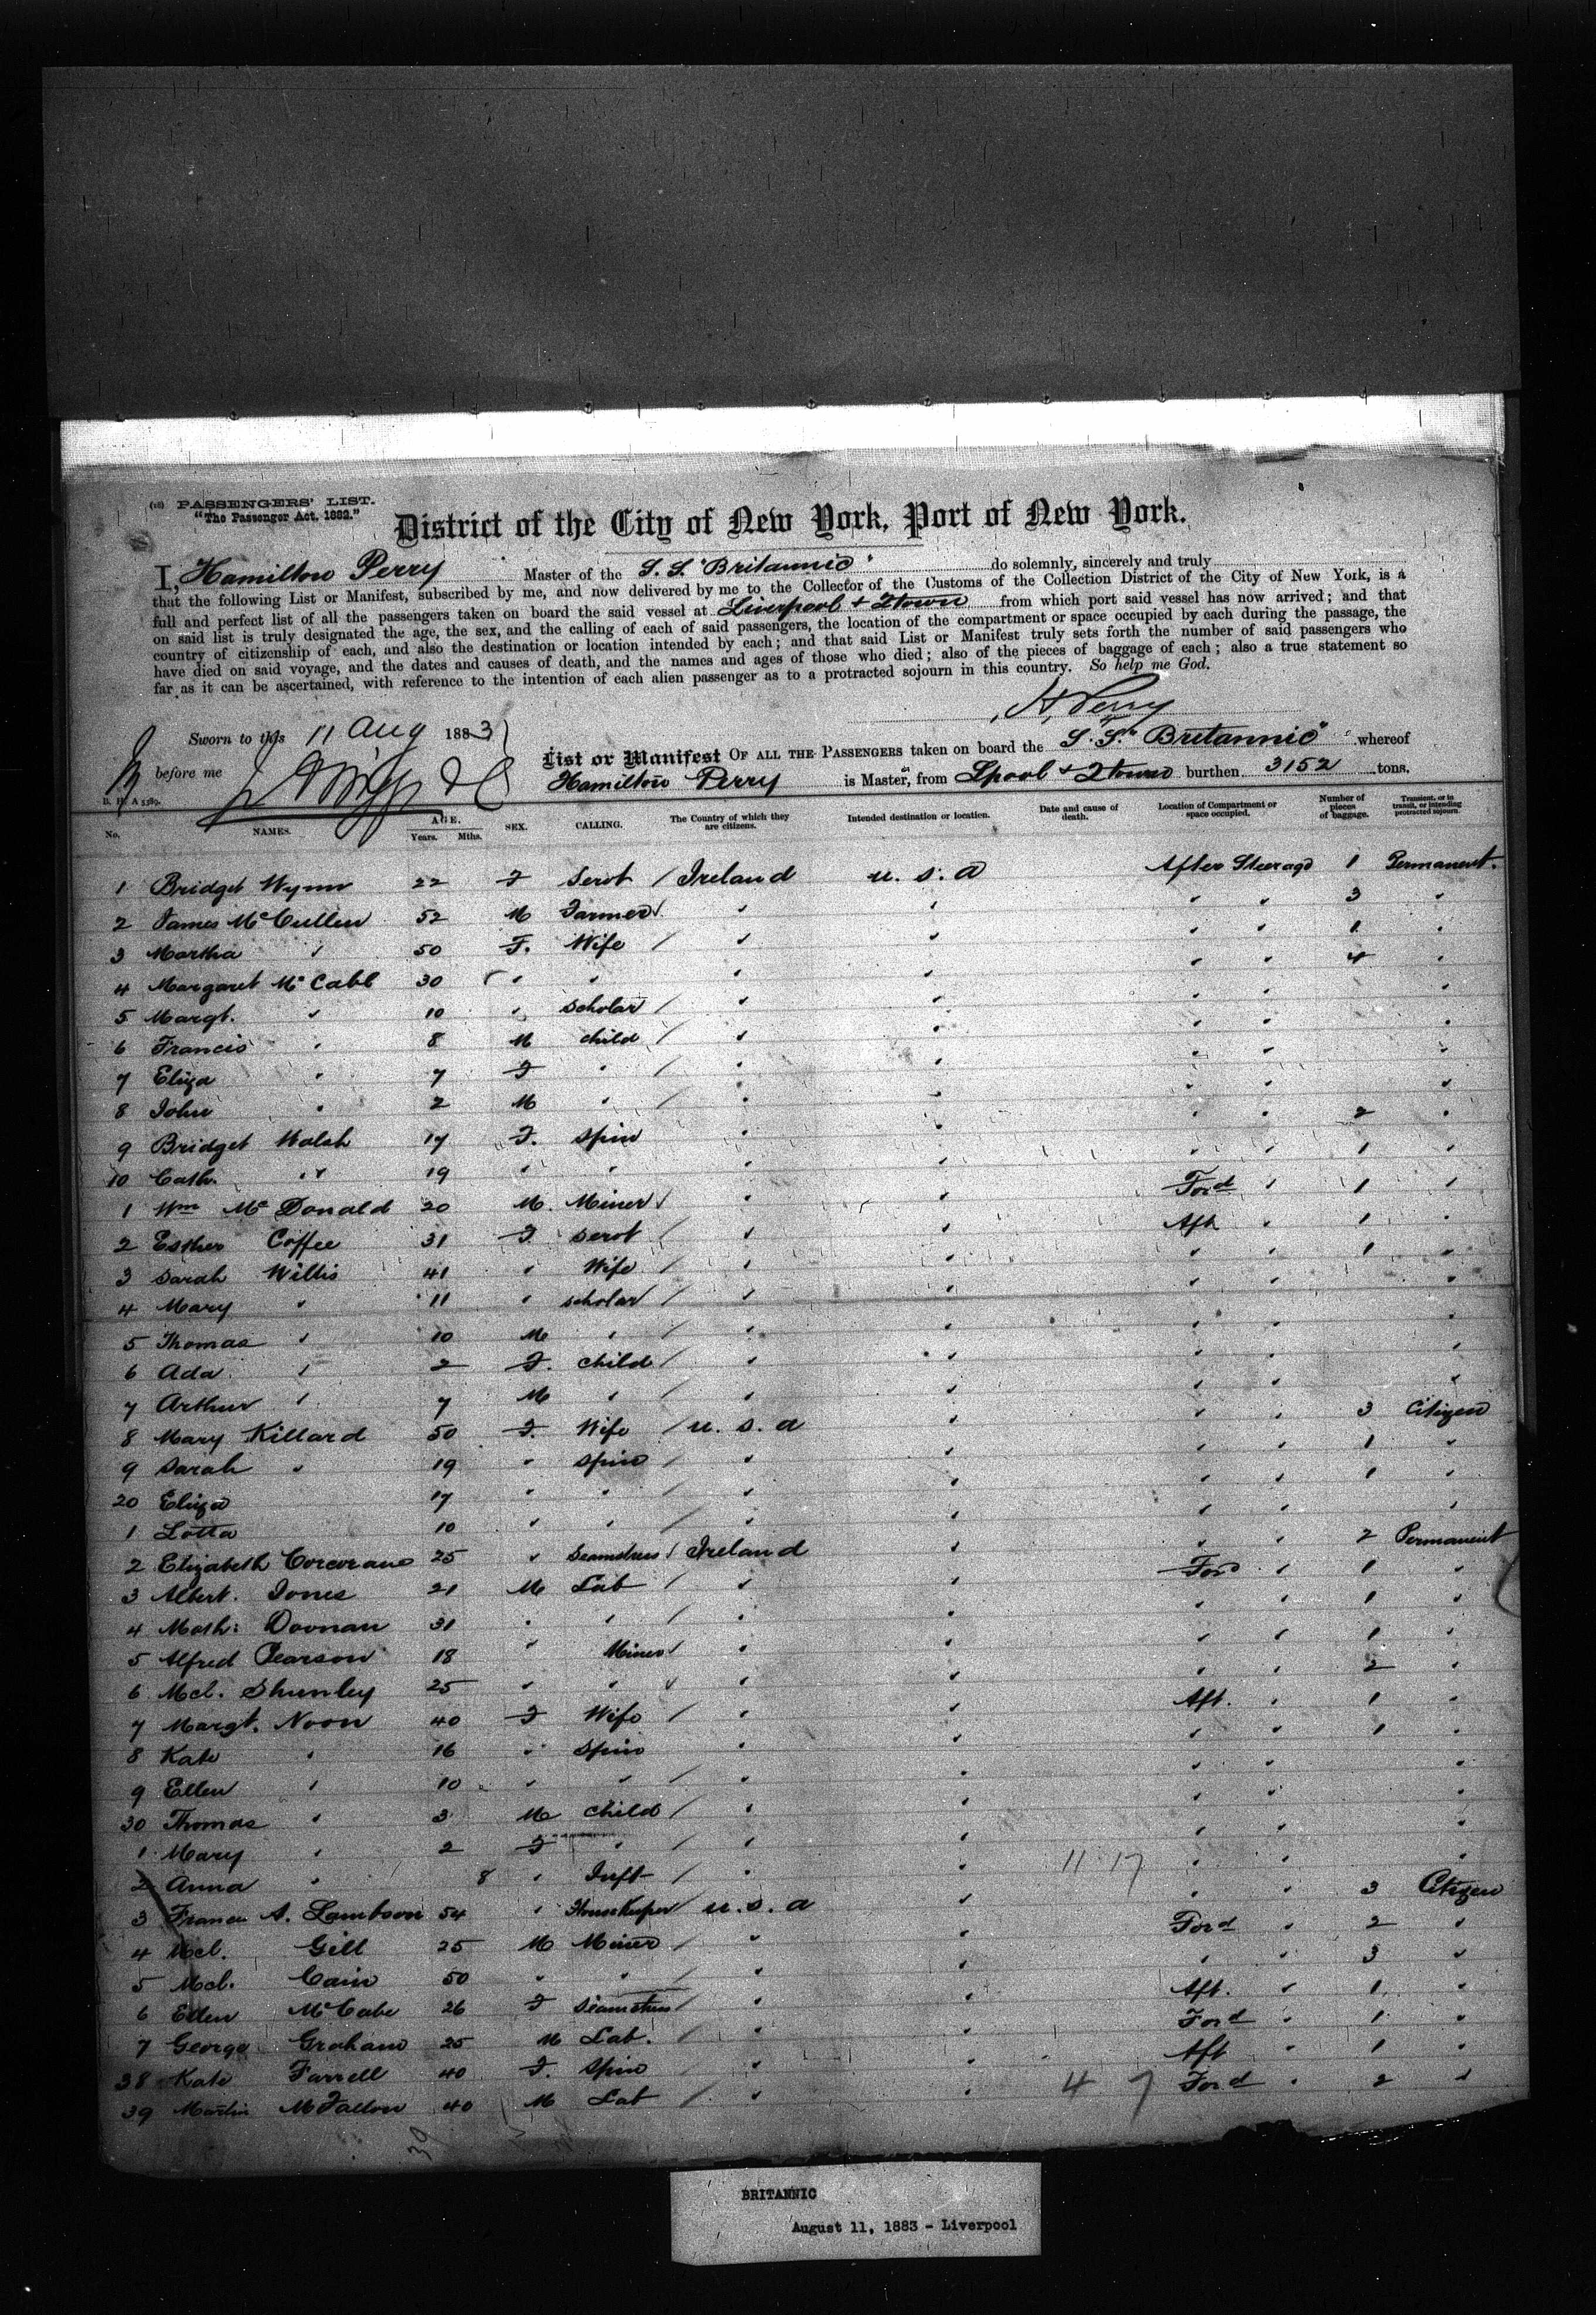 (18) PASSENGERS' LIST.
"The Passenger Act, 1882."
District of the City of New York, Port of New York.
I, Hamilton Perry Master of the S.S. "Britannic" do solemnly, sincerely and truly
that the following List or Manifest, subscribed by me, and now delivered by me to the Collector of the Customs of the Collection District of the City of New York, is a
full and perfect list of all the passengers taken on board the said vessel at Liverpool + Qtown from which port said vessel has now arrived; and that
on said list is truly designated the age, the sex, and the calling of each of said passengers, the location of the compartment or space occupied by each during the passage, the
country of citizenship of each, and also the destination or location intended by each; and that said List or Manifest truly sets forth the number of said passengers who
have died on said voyage, and the dates and causes of death, and the names and ages of those who died; also of the pieces of baggage of each; also a true statement so
far as it can be ascertained, with reference to the intention of each alien passenger as to a protracted sojourn in this country. So help me God.
H. Perry
Sworn to this 11 Aug 1883
before me
List or Manifest OF ALL THE PASSENGERS taken on board the S.S. "Britannic" whereof
Hamilton Perry is Master, from Lpool + Qtown burthen 3152 tons.
No. NAMES. AGE. Years. Mths. SEX. CALLING. The Country of which they are citizens. Intended destination or location. Date and cause of death. Location of Compartment or space occupied. Number of pieces of baggage. Transient, or in transit, or intending protracted sojourn.
1 Bridget Wynn 22 F Servt / Ireland U.S.A After Steerage 1 Permanent.
2 James McCullen 52 M Farmer / " " " " 3 "
3 Martha " 50 F. Wife / " " " " 1 "
4 Margaret McCabe 30 " " " " " " 4 "
5 Margt. " 10 " Scholar / " " " " "
6 Francis " 8 M child / " " " " "
7 Eliza " 7 F " / " " " " "
8 John " 2 M " / " " " " "
9 Bridget Walsh 17 F. Spin " " " " 2 "
10 Cath. " 19 " " " " " " 1 "
1 Wm McDonald 20 M. Miner / " " Ford " 1 "
2 Esther Coffee 31 F Servt / " " Aft " 1 "
3 Sarah Willis 41 " Wife / " " " " 1 "
4 Mary " 11 " Scholar / " " " " "
5 Thomas " 10 M " / " " " " "
6 Ada " 2 F. Child / " " " " "
7 Arthur " 7 M " / " " " " "
8 Mary Killard 50 F. Wife / U.S.A " " " 3 Citizen
9 Sarah " 19 " Spin / " " " " 1 "
20 Eliza 17 " " / " " " " 1 "
1 Lotta 10 " " / " " " " "
2 Elizabeth Corcoran 25 " Seamstress / Ireland " " " 2 Permanent
3 Albert Jones 21 M Lab / " " Ford " 1 "
4 Math: Doonan 31 " " / " " " " 1 "
5 Alfred Pearson 18 " Miner / " " " " 1 "
6 Mcl. Shunley 25 " " / " " " " 2 "
7 Margt. Noon 40 F Wife / " " Aft. " 1 "
8 Kate " 16 " Spin " " " " 1 "
9 Ellen " 10 " " / " " " " "
30 Thomas " 3 M Child / " " " " "
1 Mary " 2 F " / " " " " "
2 Anna " 8 " Inft / " " 11 17 " " "
3 Frances A. Lambson 54 " HouseKeeper / U.S.A " " " 3 Citizen
4 Mcl. Gill 25 M Miner / " " Ford " 2 "
5 Mcl. Cain 50 " " / " " " " 3 "
6 Ellen McCabe 26 F Seamstress / " " Aft. " 1 "
7 George Graham 25 M Lab. / " " Ford " 1 "
38 Kate Farrell 40 F. Spin " " Aft " 1 "
39 Martin McFallon 40 M Lab / " " 4 7 Ford " 2 "
39
BRITANNIC
August 11, 1883 - Liverpool